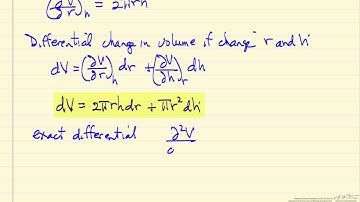 (∂V/∂r)h = 2πrh
Differential change in volume if change r and h
dV = (∂V/∂r)h dr + (∂V/∂h)r dh
dV = 2πrhdr + πr²dh
exact differential ∂²V